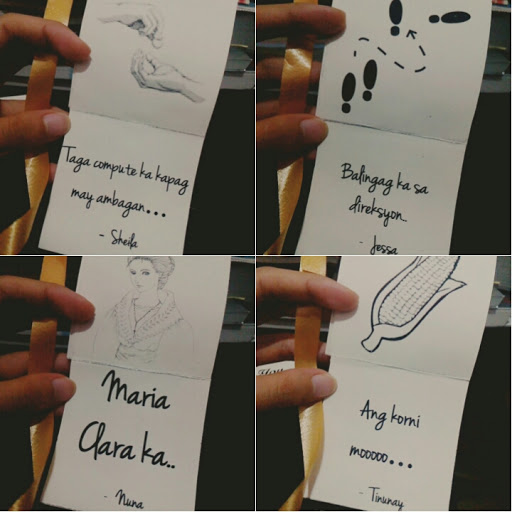 Taga compute ka kapag
may ambagan...
- Sheila
Balingag ka sa
direksyon..
- Jessa
Maria
Clara ka..
- Nuna
Ang korni
mooooo...
- Tinunay